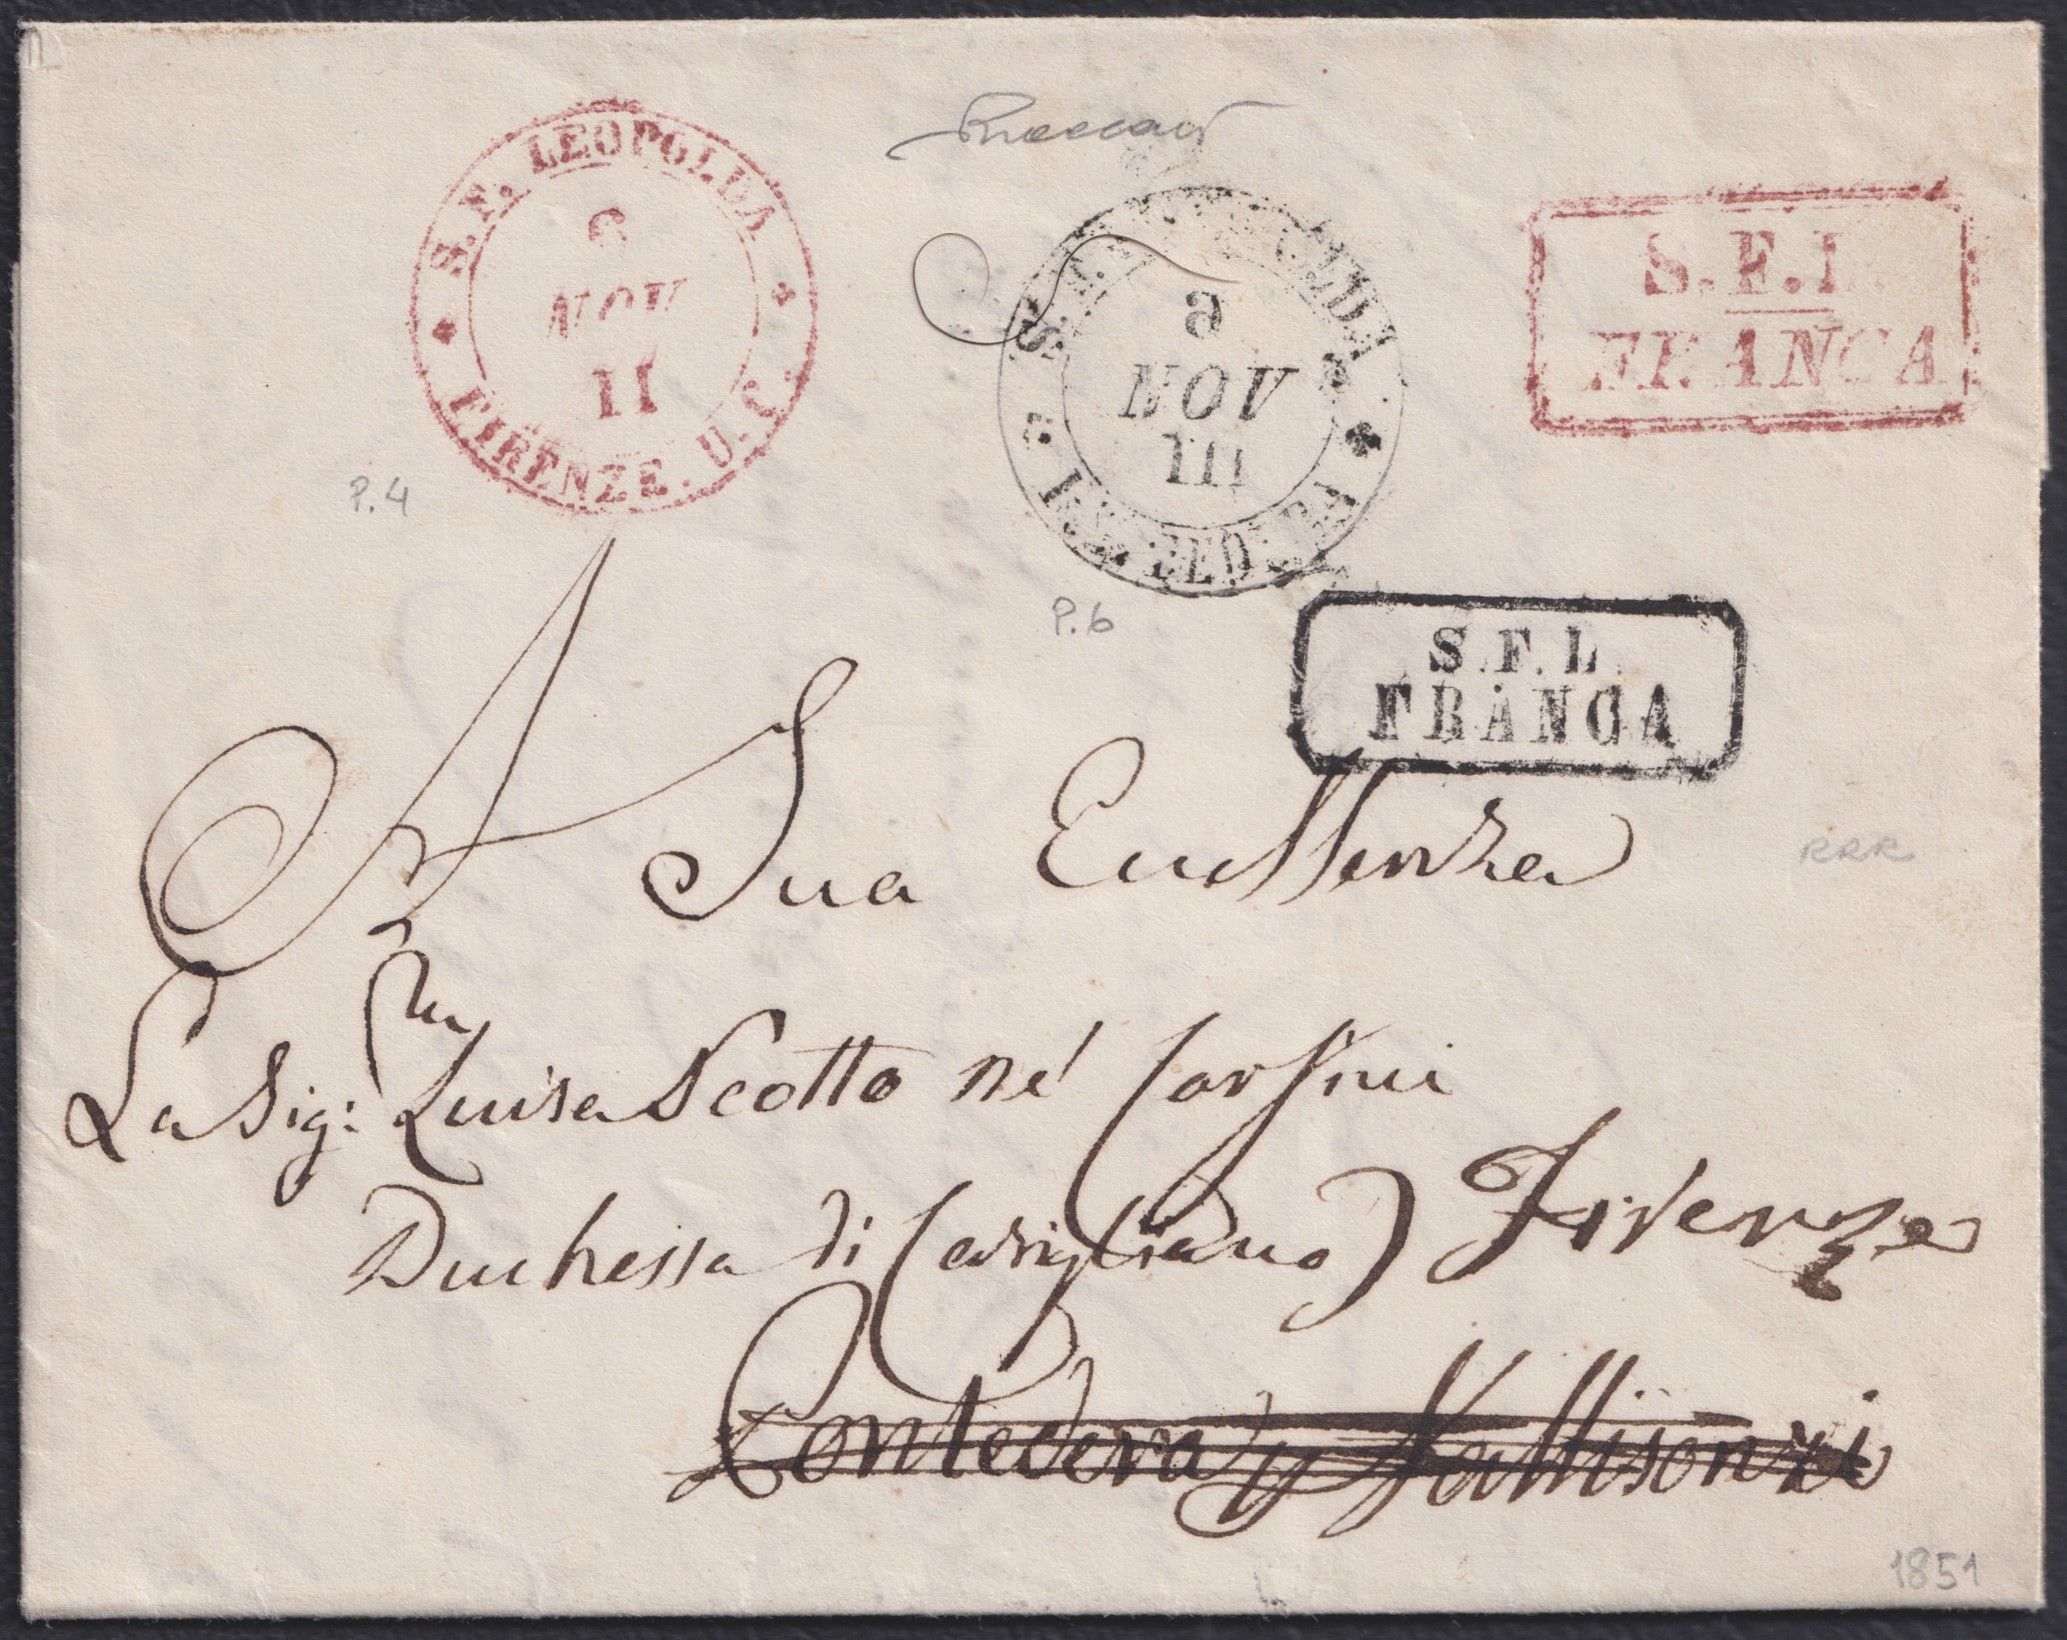 S.F. LEOPOLDA
6
NOV
II
FIRENZE. U.C.
9
NOV
III
S.F.L.
FRANCA
P.4
P.6
S.F.L.
FRANCA
A Sua Eccellenza
RRR
La Sig:ra Luisa Scotto né Corsini
Duchessa di Casigliano) Firenze
Pontedera
1851